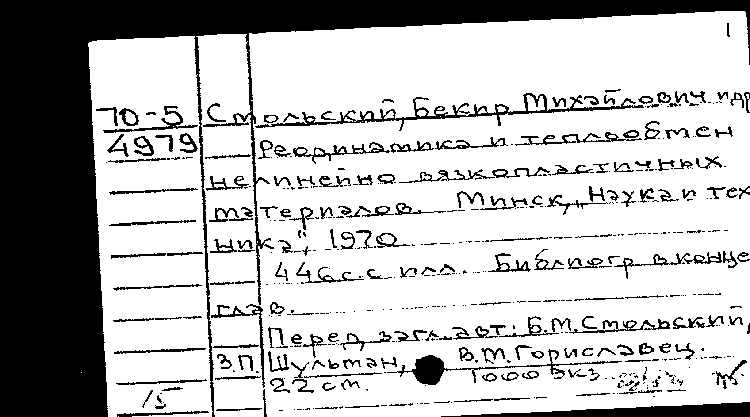 1
70-5 Смольский, Бекир Михайлович и др
4979 Реодинамика и теплообмен
нелинейно вязкопластичных
материалов. Минск, „Наука и тех
ника", 1970
446 с. с илл. Библиогр в конце
глав.
Перед загл. авт: Б.М.Смольский,
З.П. Шульман, В.М.Гориславец.
22 см. 1000 экз
15